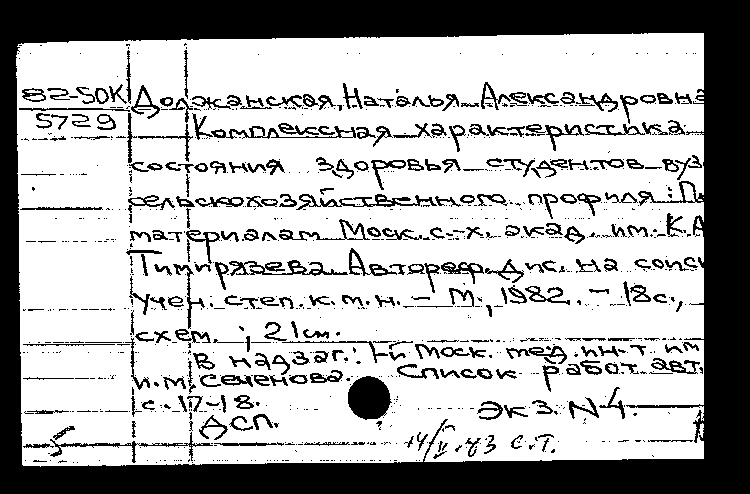 82-50К Должанская, Наталья Александровна
5729 Комплексная характеристика
состояния здоровья студентов вуз
сельскохозяйственного профиля : П
материалам Моск. с.-х. акад. им. К.А
Тимирязева. Автореф. дис. на соиск
учен. степ. к.м.н. – М., 1982. – 18 с.,
схем. ; 21 см.
В надзаг.: 1-й Моск. мед. ин-т им
И.М. Сеченова. Список работ авт.
с. 17-18.
Экз. N 4.
ДСП.
5
14/V-83 С.Т.